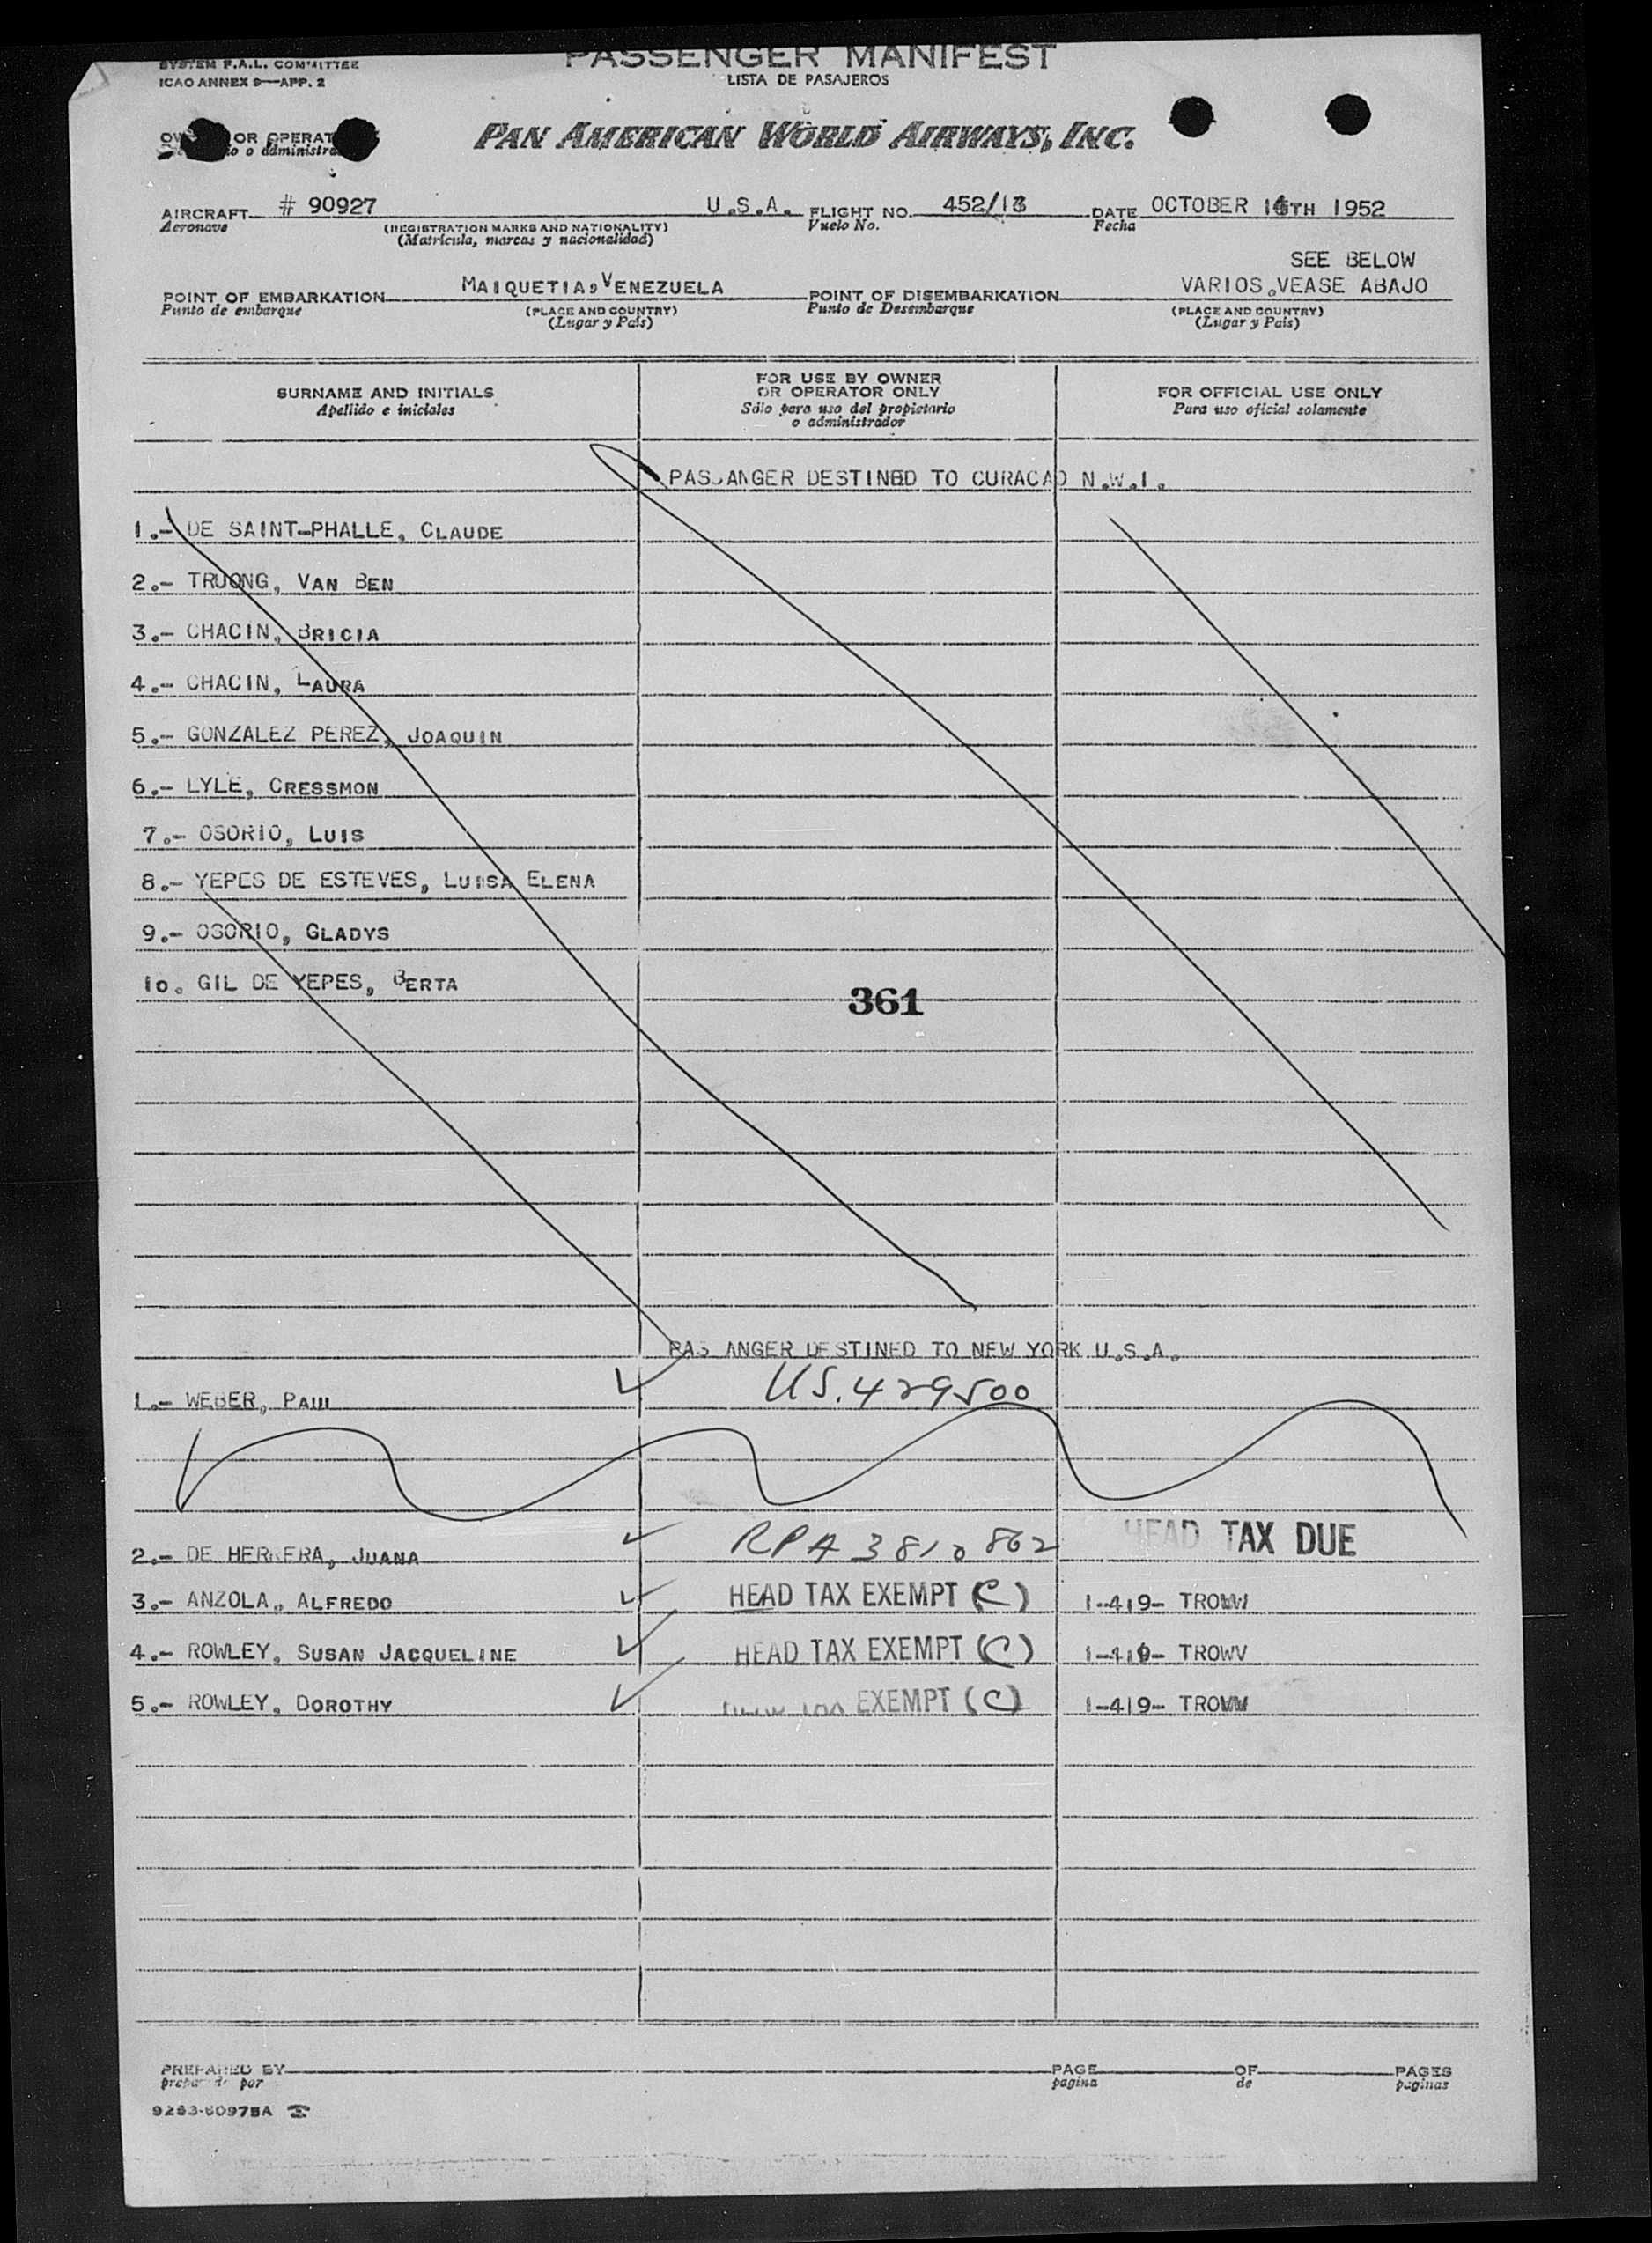 SYSTEM F.A.L. COMMITTEE
ICAO ANNEX 9—APP. 2
PASSENGER MANIFEST
LISTA DE PASAJEROS
OR OPERAT
o administra
PAN AMERICAN WORLD AIRWAYS, INC.
AIRCRAFT # 90927 U.S.A. FLIGHT NO. 452/13 DATE OCTOBER TH 1952
Aeronave (REGISTRATION MARKS AND NATIONALITY) Vuelo No. Fecha
(Matrícula, marcas y nacionalidad)
SEE BELOW
POINT OF EMBARKATION MAIQUETIA, VENEZUELA POINT OF DISEMBARKATION VARIOS.VEASE ABAJO
Punto de embarque (PLACE AND COUNTRY) Punto de Desembarque (PLACE AND COUNTRY)
(Lugar y País) (Lugar y País)
SURNAME AND INITIALS FOR USE BY OWNER OR OPERATOR ONLY FOR OFFICIAL USE ONLY
Apellido e iniciales Sólo para uso del propietario o administrador Para uso oficial solamente
PASSANGER DESTINED TO CURACAO N.W.I.
1.- DE SAINT-PHALLE, CLAUDE
2.- TRUONG, VAN BEN
3.- CHACIN, BRICIA
4.- CHACIN, LAURA
5.- GONZALEZ PEREZ, JOAQUIN
6.- LYLE, CRESSMON
7.- OSORIO, LUIS
8.- YEPES DE ESTEVES, LUISA ELENA
9.- OSORIO, GLADYS
10. GIL DE YEPES, BERTA
361
PAS ANGER DESTINED TO NEW YORK U.S.A.
1.- WEBER, PAUL US.429500
2.- DE HERRERA, JUANA RPA 3810862 HEAD TAX DUE
3.- ANZOLA, ALFREDO HEAD TAX EXEMPT (C) 1-419- TROWV
4.- ROWLEY, SUSAN JACQUELINE HEAD TAX EXEMPT (C) 1-419- TROWV
5.- ROWLEY, DOROTHY EXEMPT (C) 1-419- TROWV
PREPARED BY PAGE OF PAGES
preparado por pagina de paginas